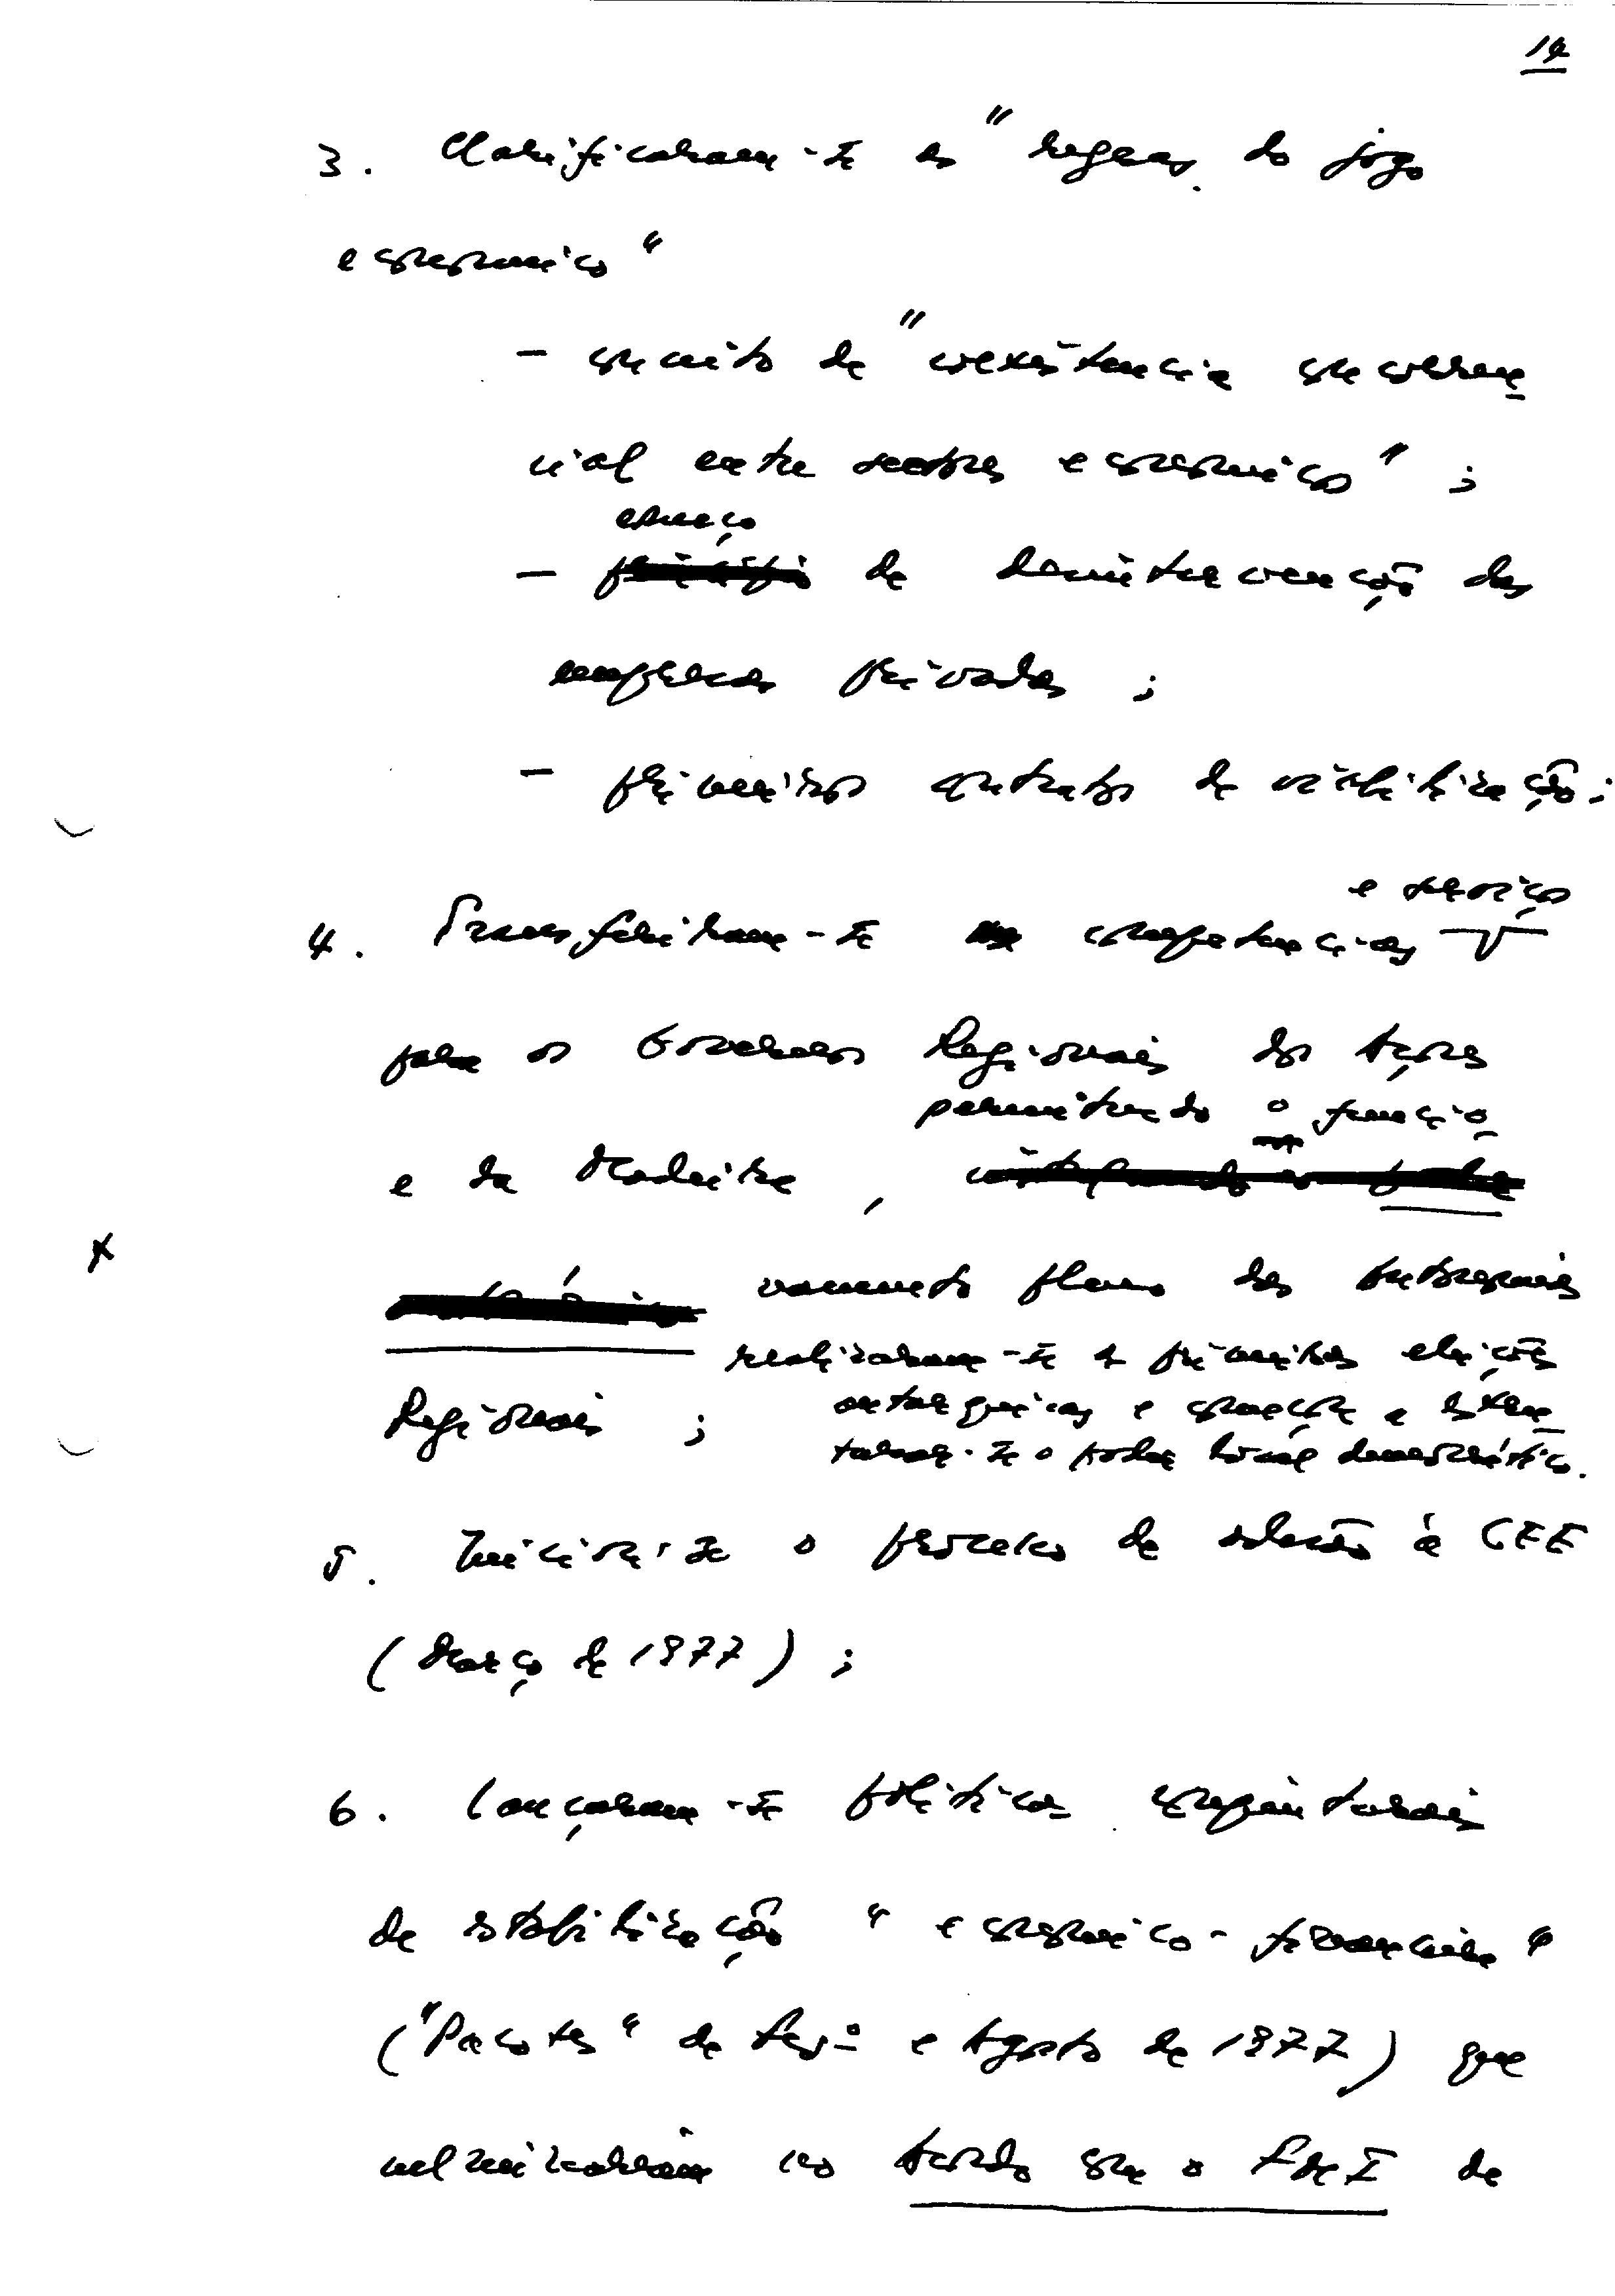 14
3. Clarificaram-se as "regras do jogo
económico"
- conceito de "coexistência concorren
cial entre sectores económicos" ;
esforço
- de desintervenção das
empresas privadas ;
- primeiros contratos de viabilização ;
e serviços
4. Transferiram-se competências
para os Governos Regionais dos Açores
permitindo o funcio
e da Madeira ,
namento pleno das Autonomias
realizaram-se as primeiras eleições
Regionais ;
autárquicas e começou a estru
turar-se o poder local democrático.
5. Iniciou-se o processo de adesão à CEE
(Março de 1977) ;
6. Lançaram-se políticas conjunturais
de estabilização "económico-financeira"
("Pacotes" de Fev.º e Agosto de 1977) que
culminaram no Acordo com o FMI de